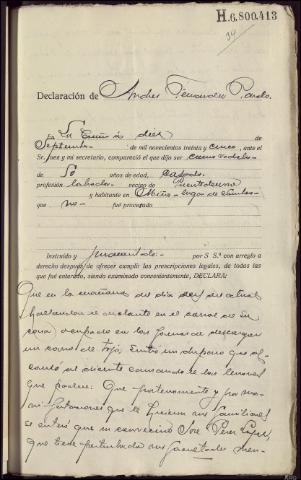 H.6.800.413
34
Declaración de Andres Fernandez Pardo.
En La Coruña a diez de
Septiembre de mil novecientos treinta y cinco, ante el
Sr. Juez y mi secretario, compareció el que dijo ser como
de 50 años de edad, casado,
profesión labrador vecino de Puentedeume
y habitando en lugar de
que no fué procesado
Instruído y juramentado por S Sª con arreglo a
derecho después de ofrecer cumplir las prescripciones legales, de todas las
que fué enterado, siendo examinado convenientemente, DECLARA:
Que en la mañana del día diez del actual
hallandose el declarante en el corral de su
casa ocupado en las faenas de descargar
un carro de tojo, sintió un disparo que al
al dicente causandole las lesiones
que padece: Que posteriormente y por ma-
nifestaciones que le hicieron sus familiares
se enteró que su convecino Jose Perez Lopez,
que tiene perturbadas sus facultades men-